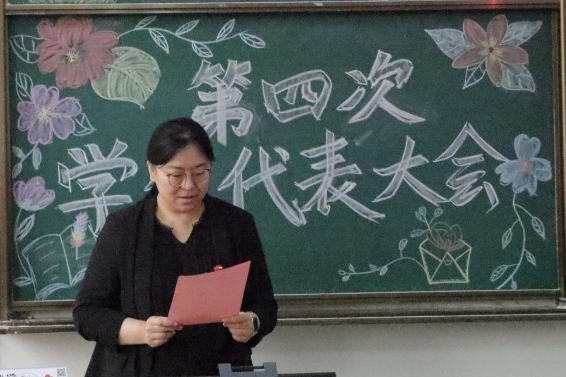 第四次
学代表大会